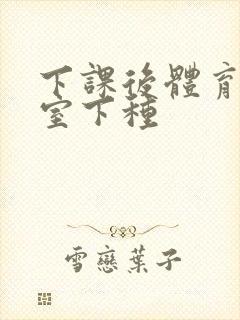 下課後體育
室下種
雪戀葉子